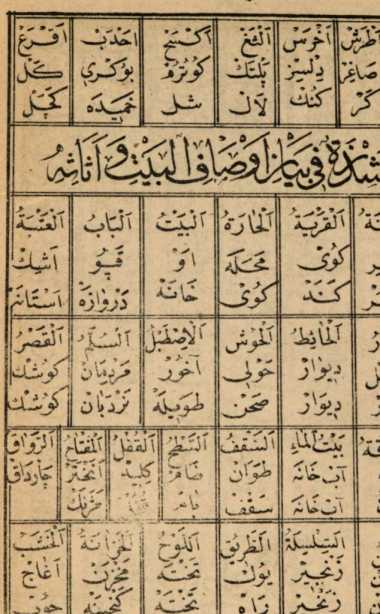 اَطْرَشْ اَخْرَسْ اَلْثَغْ اَكْسَحْ اَحْدَبْ اَقْرَعْ
صَاغِرْ دِلْسِزْ پَلْتَكْ كُوتُرُمْ بُوكْرِى كَلْ
كَرْ كُنْكْ لَالْ شَلْ خَمِيدَه كَچَلْ
شذة فى بيان اوصاف البيت و اثاثه
اَلْقَرْيَةُ اَلْحَارَةُ اَلْبَيْتُ اَلْبَابُ اَلْعَتَبَةُ
كُوىْ مَحَلَّه اَوْ قَپُو اَشِيكْ
كَنْدْ كُوىْ خَانَه دَرْوَازَه
اَلْحَائِطُ اَلْحَوْشُ اَلْاِصْطَبْلُ اَلسُّلَّمُ اَلْقَصْرُ
دِيوَارْ حَوْلِى آخُورْ مَرْدِيبَانْ كُوشْكْ
دِيوَارْ صَحَنْ طَوِيلَه نَرْدُبَانْ كُوشْكْ
بَيْتُ الْمَاءِ اَلسَّقْفُ اَلسَّطْحُ اَلْقُفْلُ اَلْمِفْتَاحُ اَلرِّوَاقُ
آبْ خَانَه طَوَانْ ضَامْ كِلِيدْ چَارْدَاقْ
آبْ خَانَه سَقْفْ بَامْ
اَلسِّلْسِلَةُ اَلطَّرِيقُ اَللَّوْحُ اَلْخِزَانَةُ اَلْخَشَبُ
زَنْجِيرْ يُولْ تَخْتَه مَخْزَنْ اَغَاجْ
زَنْجِيرْ رَاهْ تَخْتَه گَنْجِينَه چُوبْ